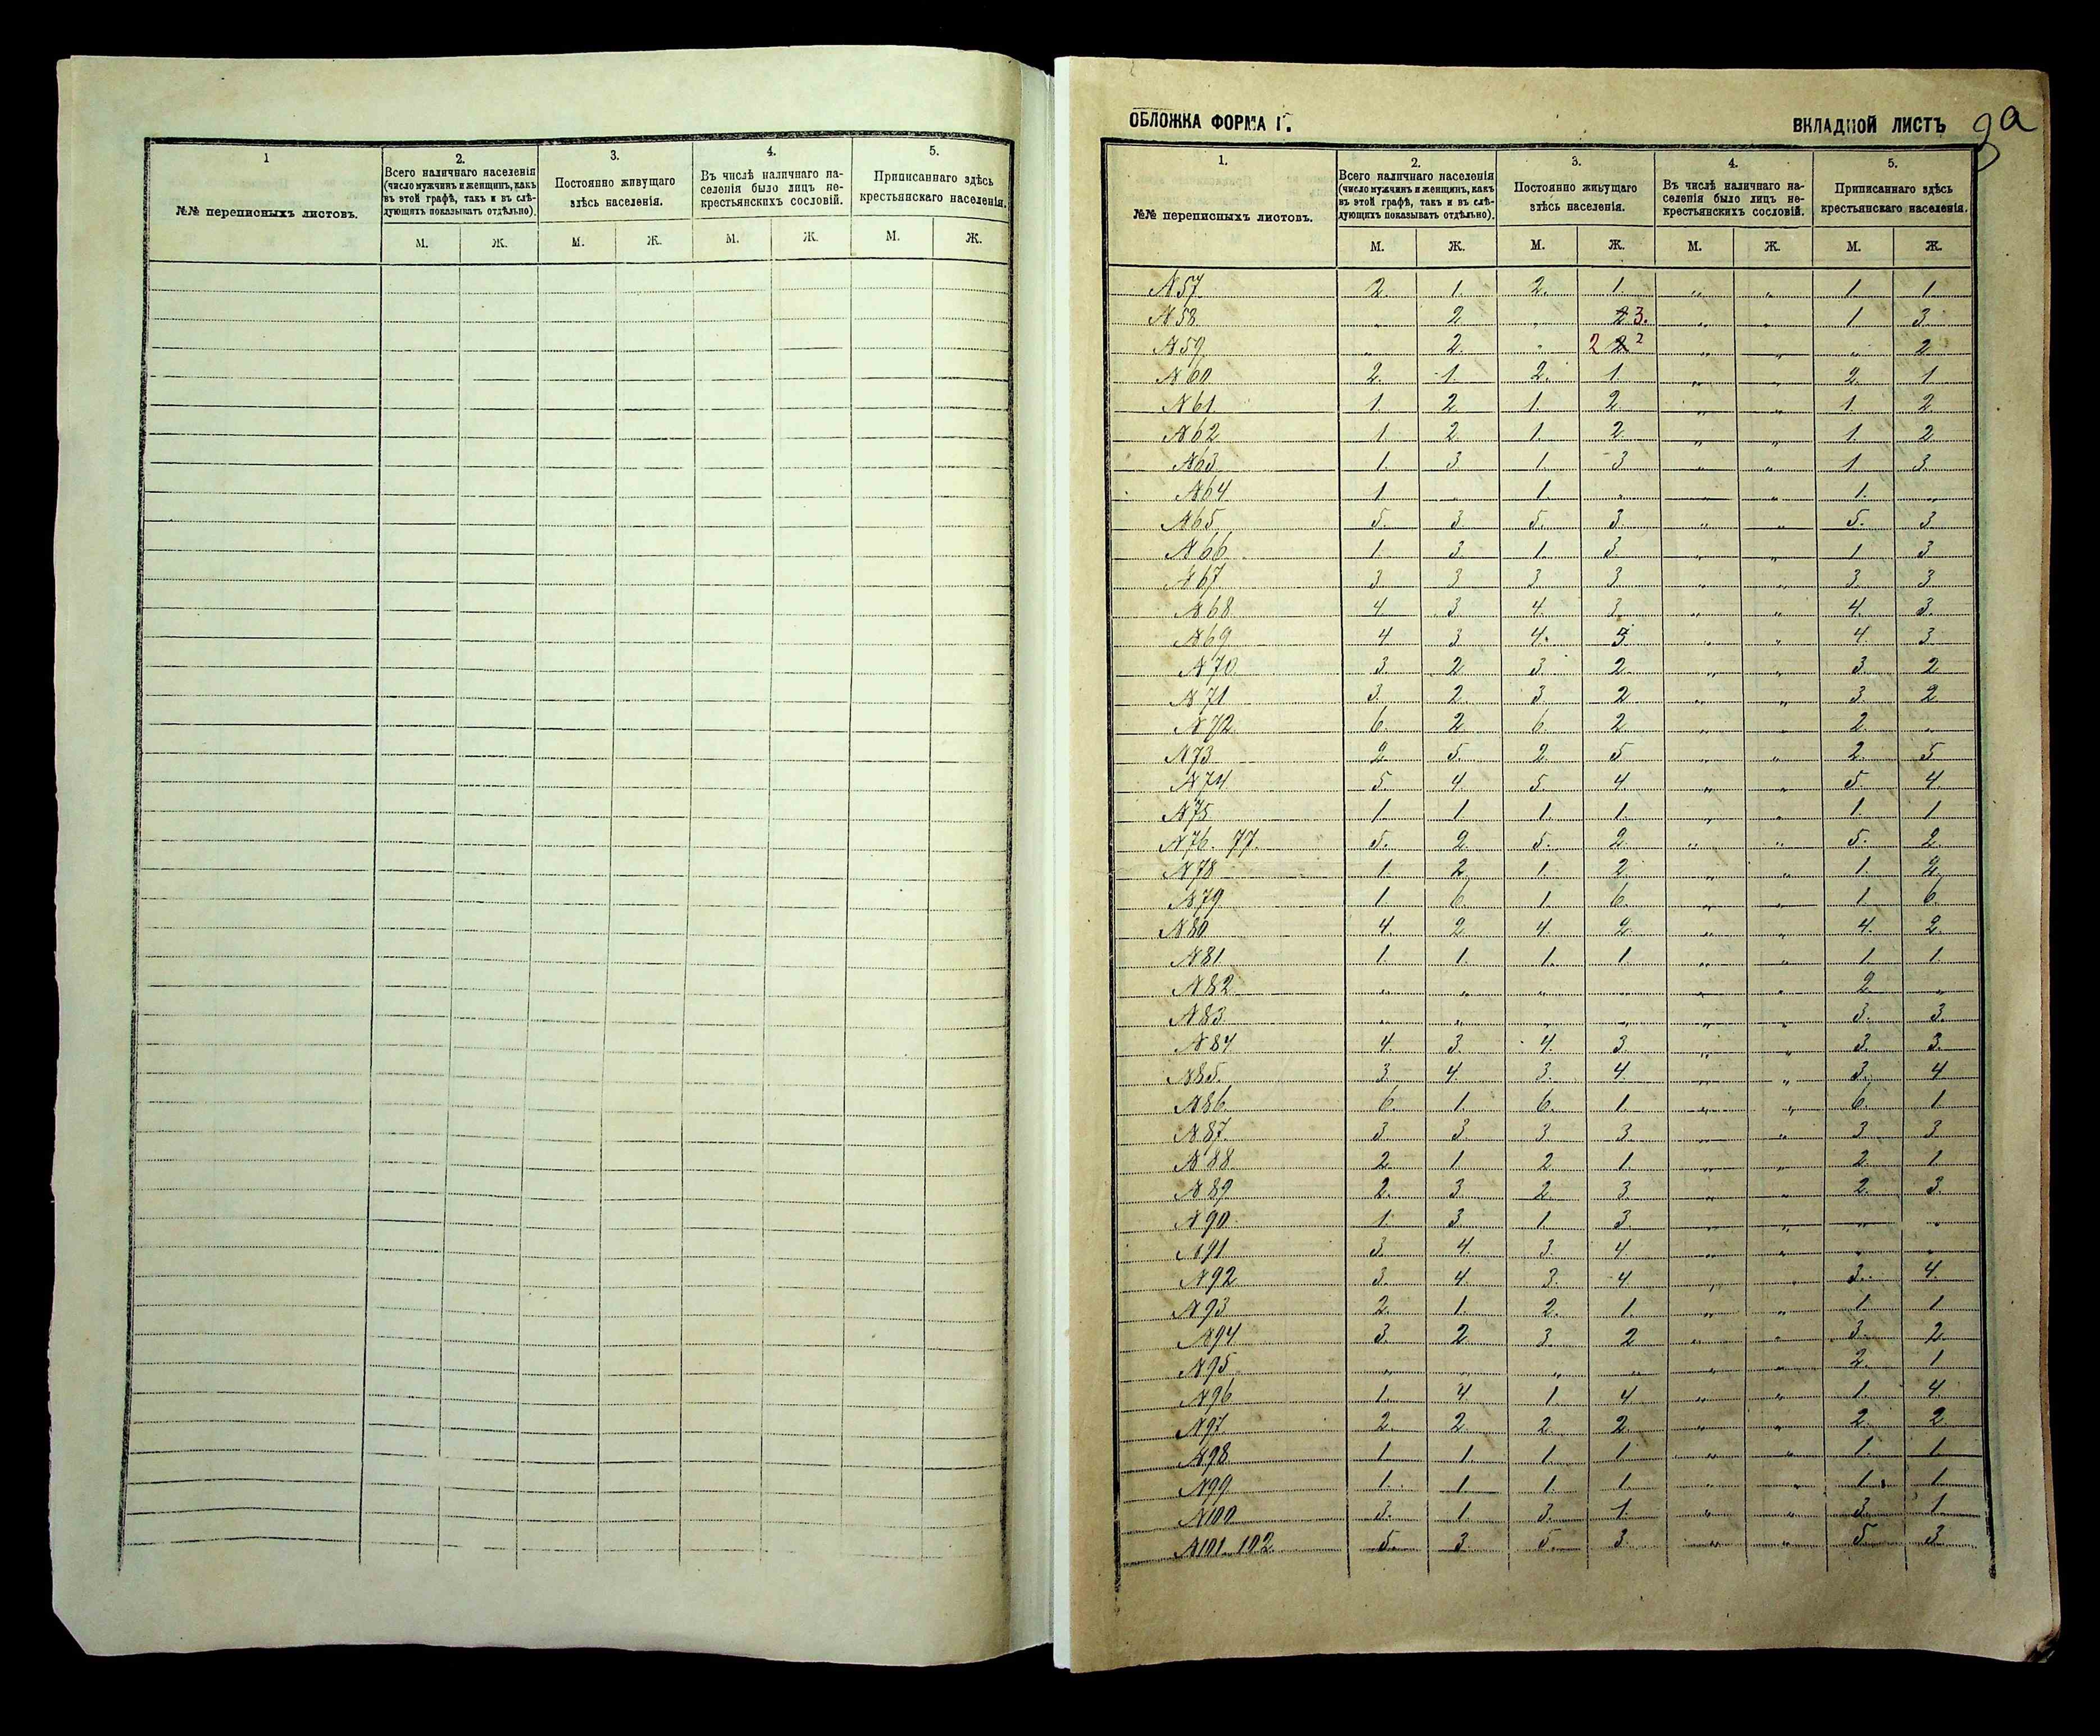 1
2.
3.
4.
5.
№№ переписныхъ листовъ.
Всего наличнаго населенія
(число мужчинъ и женщинъ, какъ
въ этой графѣ, такъ и въ слѣ-
дующихъ показывать отдѣльно).
Постоянно живущаго
здѣсь населенія.
Въ числѣ наличнаго на-
селенія было лицъ не-
крестьянскихъ сословій.
Приписаннаго здѣсь
крестьянскаго населенія.
М. Ж. М. Ж. М. Ж. М. Ж.
ОБЛОЖКА ФОРМА Г.
ВКЛАДНОЙ ЛИСТЪ
9а
1. 2. 3. 4. 5.
№№ переписныхъ листовъ.
Всего наличнаго населенія
(число мужчинъ и женщинъ, какъ
въ этой графѣ, такъ и въ слѣ-
дующихъ показывать отдѣльно).
Постоянно живущаго
здѣсь населенія.
Въ числѣ наличнаго на-
селенія было лицъ не-
крестьянскихъ сословій.
Приписаннаго здѣсь
крестьянскаго населенія.
М. Ж. М. Ж. М. Ж. М. Ж.
№57 2. 1. 2. 1. " " 1 1
№58 " 2 " 2 3. " " 1 3
№59 " 2. " 2 2 2 " " " 2
№60 2. 1. 2. 1. " " 2. 1
№61 1. 2 1. 2 " " 1. 2
№62 1 2 1. 2 " " 1. 2
№63 1. 3 1. 3 " " 1 3
№64 1 " 1 " " " 1. "
№65 5. 3 5. 3 " " 5. 3
№66 1 3 1 3 " " 1 3
№67 3 3 3 3 " " 3 3
№68 4 3 4. 3 " " 4. 3
№69 4 3 4. 3 " " 4 3
№70 3. 2 3 2 " " 3. 2
№71 3. 2 3. 2 " " 3 2
№72 6. 2 6. 2 " " 2. "
№73 2. 5. 2 5 " " 2. 5
№74 5. 4 5. 4 " " 5. 4
№75 1. 1 1 1. " " 1. 1
№76. 77. 5. 2 5. 2 " " 5. 2
№78 1. 2 1. 2 " " 1. 2
№79 1. 6. 1 6. " " 1 6
№80 4. 2 4 2 " " 4. 2
№81 1. 1. 1. 1. " " 1. 1
№82 " " " " " " 2 "
№83 " " " " " " 3. 3.
№84 4. 3. 4. 3 " " 3. 3.
№85. 3 4. 3. 4 " " 3. 4
№86 6. 1. 6. 1 " " 6. 1
№87 3. 3 3 3 " " 3 3
№88 2 1 2. 1. " " 2. 1.
№89 2. 3 2 3 " " 2. 3
№90 1. 3 1 3 " " " "
№91 3. 4. 3. 4 " " " "
№92 3. 4. 3. 4 " " 3. 4.
№93 2. 1. 2. 1. " " 1. 1
№94 3. 2 3 2 " " 3. 2
№95 " " " " " " 2. 1
№96 1. 4 1. 4 " " 1. 4.
№97 2. 2 2. 2 " " 2. 2
№98 1 1. 1. 1 " " 1. 1.
№99 1. 1 1. 1. " " 1. 1.
№100 3. 1. 3. 1. " " 3. 1.
№101. 102 5. 3 5. 3. " " 5 3